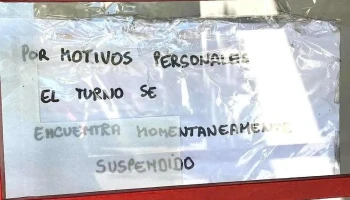 POR MOTIVOS PERSONALES
EL TURNO SE
ENCUENTRA MOMENTANEAMENTE
SUSPENDIDO